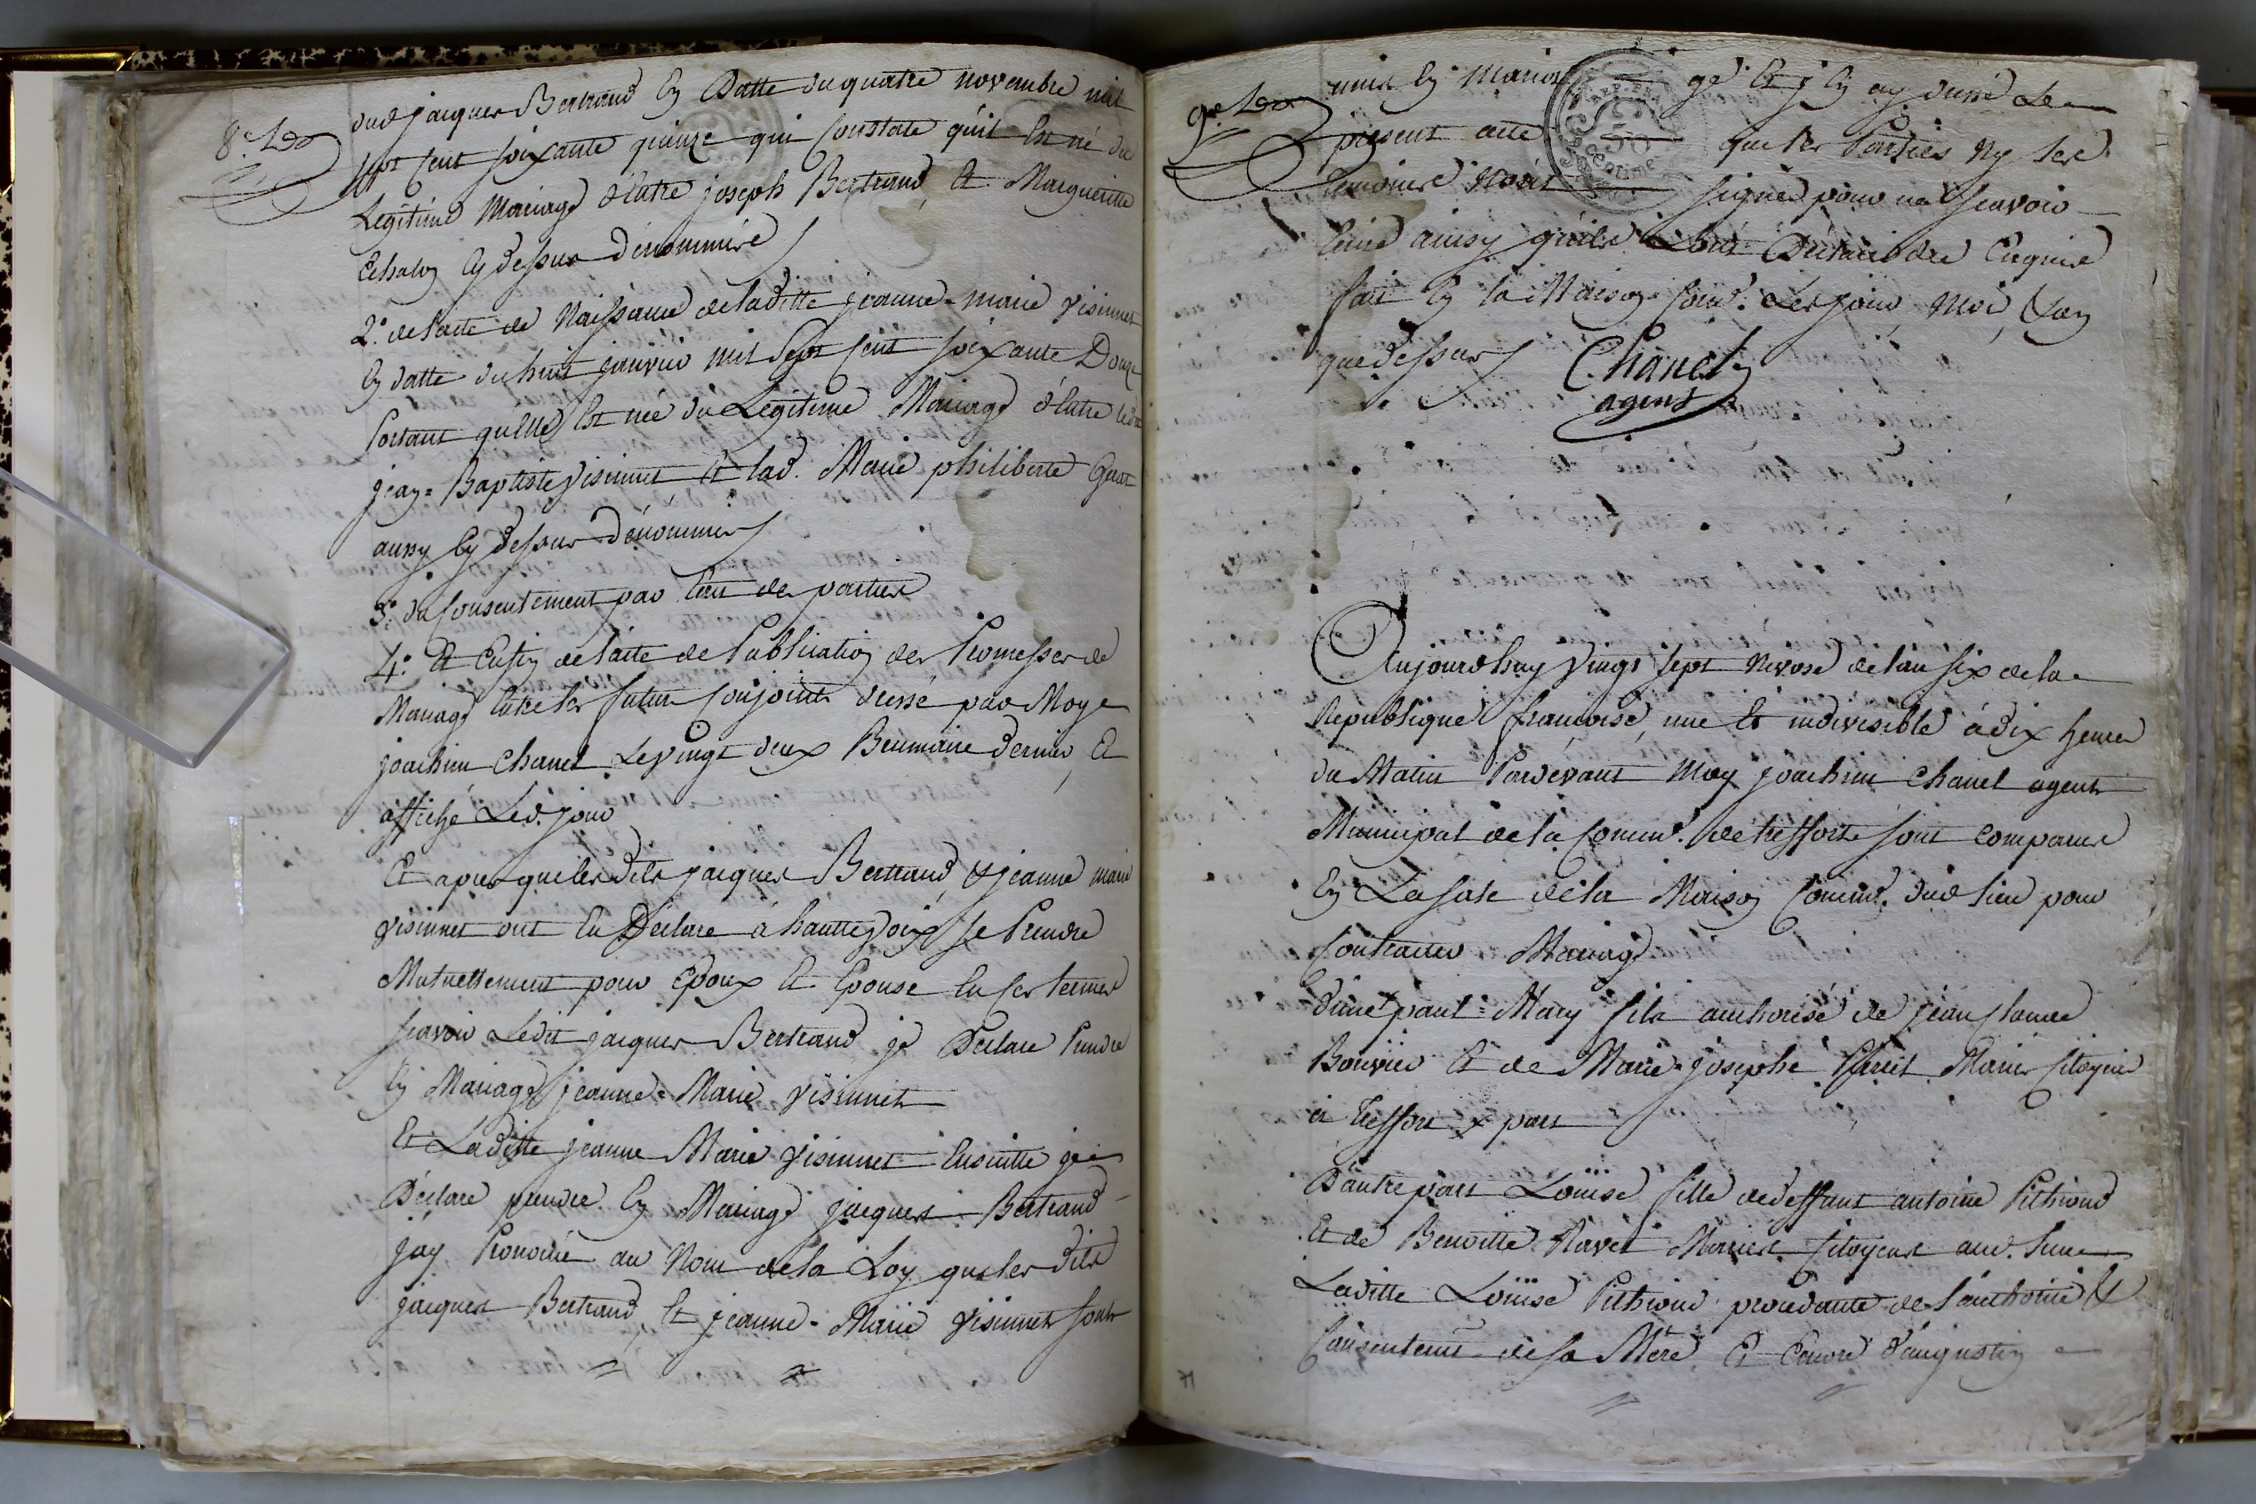 8e. Led
dud jacques Bertrand Ey Datte du quatre novembre mil
sept cent soixante quinze qui Constate qu'il Est né du
Legitime Mariage d'Entre joseph Bertrand Et Margueritte
Echalon Cy dessus dénommés
2°. de l'acte de Naissance de laditte jeanne-marie visinnet
Ey datte du huit janvier mil sept cent soixante Douze
Portant qu'Elle Est née du Legitime Mariage d'Entre led
jean-Baptiste visinnet Et lad. Marie philiberte
aussy Cy dessus dénommés
3°. du Consentement par Eux de parties
4°. Et Enfin de l'acte de Publication des Promesses de
Mariage Entre les futurs Conjoints dressé par Moy
joachim Chanel Le vingt deux Brumaire dernier, Et
affiché Led. jour
Et apres que lesdits jacques Bertrand & jeanne marie
visinnet ont Eu Déclaré à hautte voix se Prendre
Mutuellement pour Epoux Et Epouse En ces termes
sçavoir Ledit jacques Bertrand je Déclare Prendre
Ey Mariage jeanne-Marie visinnet
Et Laditte jeanne Marie visinnet Ensuitte je
Déclare prendre Ey Mariage jacques Bertrand
j'ay Prononcé au Nom de la Loy que lesdits
jacques Bertrand Et jeanne-Marie visinnet sont
9e. Led
unis Ey Maria ge Et j'Ey ay dressé Le
présent acte que les Parties Ny les
témoins N'ont signés pour ne sçavoir
Ecrire ainsy qu'ils L'ont Déclaré de Enquis
fait Ey la Maison Comme. Les jour Mois & an
que dessus
Chanel
agent
REP. FRA.
50
centime
Aujourdhuy vingt sept Nivose de l'an six de la
Republique francoise, une Et indivisible à dix heures
du Matin Pardevant Moy joachim Chanel agent
Municipal de la Commne. de treffort sont comparus
Ey La sale de la Maison Commne. dud lieu pour
Contracter Mariage
D'une part Mary fils authorisé de jean Claude
Bouvier Et de Marie-josephe Mariés Citoyens
à treffort
D'autre part Loüise fille de deffunt antoine Pithioud
Et de Benoitte Ravet Mariés Citoyens aud. lieu
Laditte Loüise Pithioud procédante de l'authorité &
Consentement de sa Mère Et Encore d'augustin